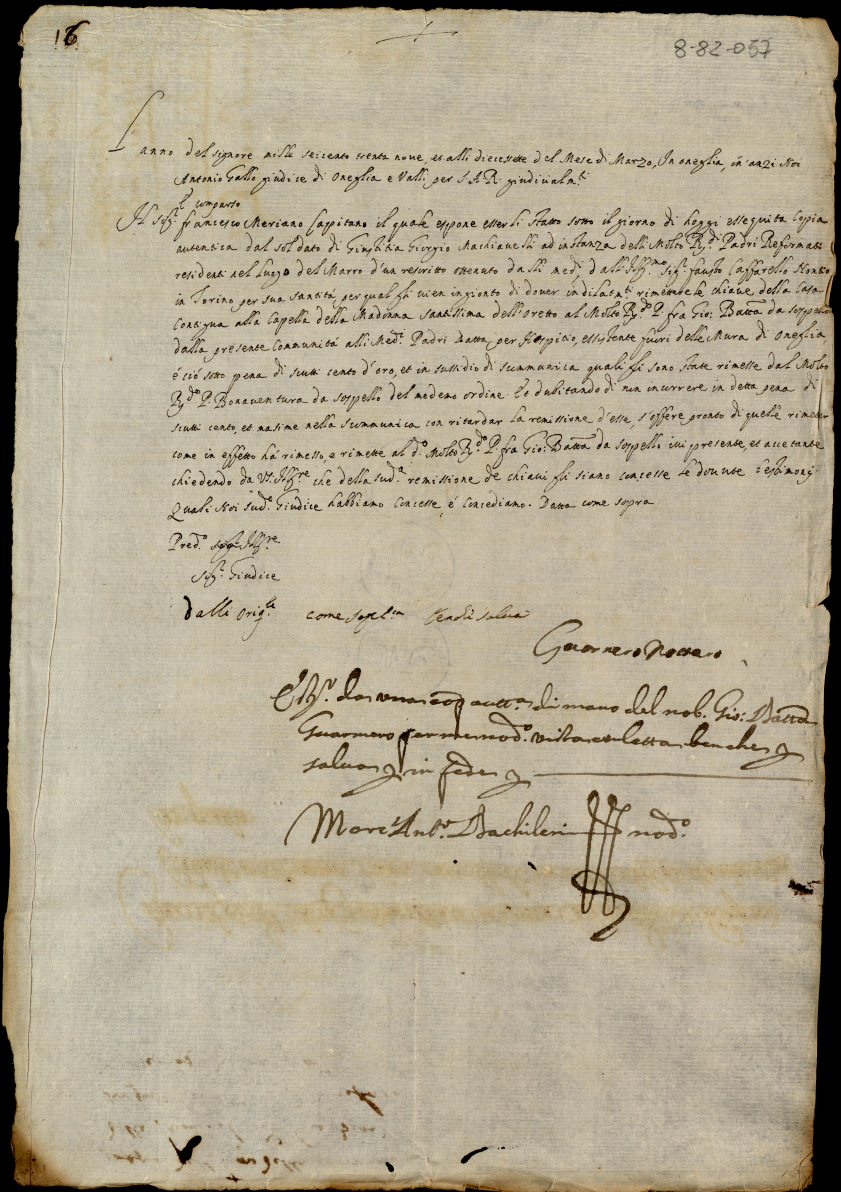 16
8-82-057
L'anno del signore mille seicento trenta nove, et alli diecessette del Mese di Marzo, In oneglia, in anzi Noi
Antonio Gallo giudice di Oneglia e Valli per S.A.R. giudicialm.te
È comparso
Il Sig.r francesco Meriano Cappitano il quale espone esserli stato sotto il giorno di hoggi essequita Copia
autentica dal soldato di Giustitia Giorgio Machiavelli ad instanza delli Molto R.di Padri Reformati
residenti nel Luogo del Marro d'un rescritto ottenuto dalli med.i dall'Ill.mo Sig.r fausto Caffarello Nontio
in Torino per sua santità, per qual li vien ingionto di dover indilatam.te rimettere le chiave della Casa
Contigua alla Capella della Madonna santissima dell'oretto al Molto R.do P. fra Gio: Batta da Sospello
dalla presente Communità alli Med.i Padri Datta, per Hospitio, essistente fuori delle Mura di Oneglia
è ciò sotto pena di scutti cento d'oro, et in sussidio di scummunica quali li sono state rimesse dal Molto
R.do P. Bonaventura da Sospello del medemo ordine. Et dubitando di non incurrere in detta pena di
scutti cento, et masime nella scummunica con ritardar la remissione d'esse, s'offere pronto di quelle rimeter
come in effetto ha rimesso, e rimette al d.o Molto R.do P. fra Gio: Batta da Sospelli ivi presente, et accetante
chiedendo da V.s. Ill.re che della sud.a remissione de chiavi li siano concesse le dovute testimonij
Quali Noi sud.o Giudice habbiamo Concesse, é Concediamo. Datta come sopra
Pred.o Ill.re
Sig.r Giudice
Dalli Orig.li come salva
Guarnero Nottaro
di mano del nob. Gio: Batta
Guarnero nod.o vista et letta
salva in fede
Marc'Ant.o Bachileri nod.o